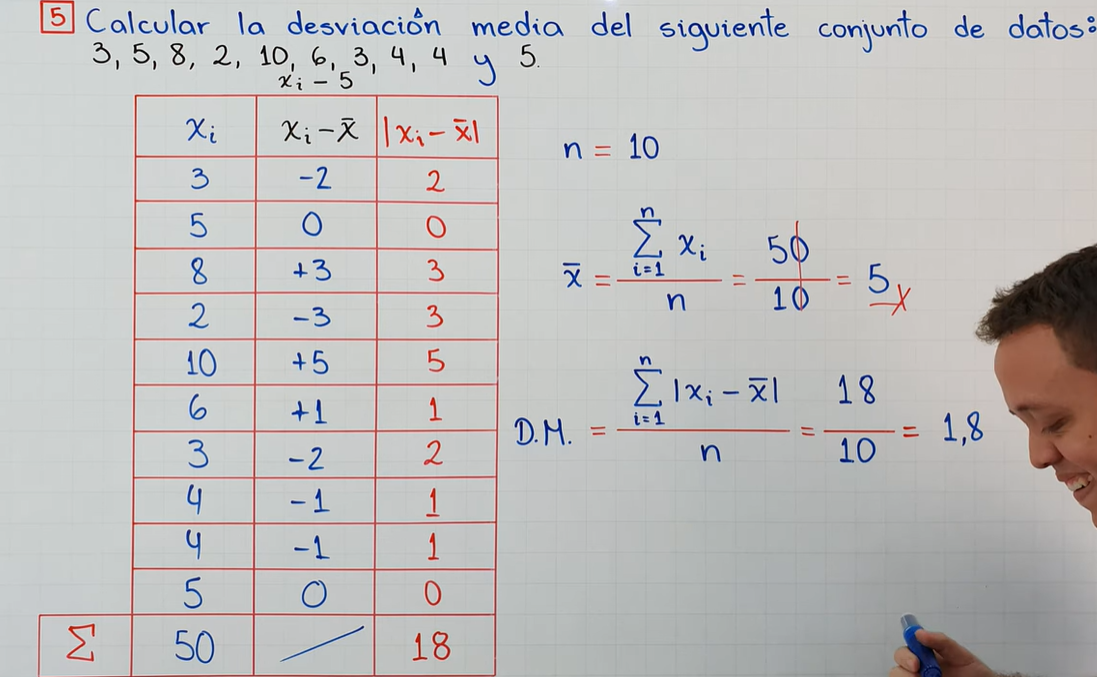 5 Calcular la desviación media del siguiente conjunto de datos:
3, 5, 8, 2, 10, 6, 3, 4, 4 y 5.
xᵢ - 5
xᵢ xᵢ - x̄ |xᵢ - x̄|
3 -2 2
5 0 0
8 +3 3
2 -3 3
10 +5 5
6 +1 1
3 -2 2
4 -1 1
4 -1 1
5 0 0
Σ 50 / 18
n = 10
x̄ = Σⁿᵢ₌₁ xᵢ / n = 50 / 10 = 5
D.M. = Σⁿᵢ₌₁ |xᵢ - x̄| / n = 18 / 10 = 1,8